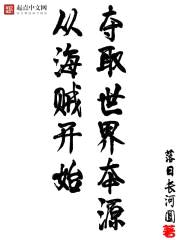 起点中文网
夺取世界本源
从海贼开始
落日长河圆著